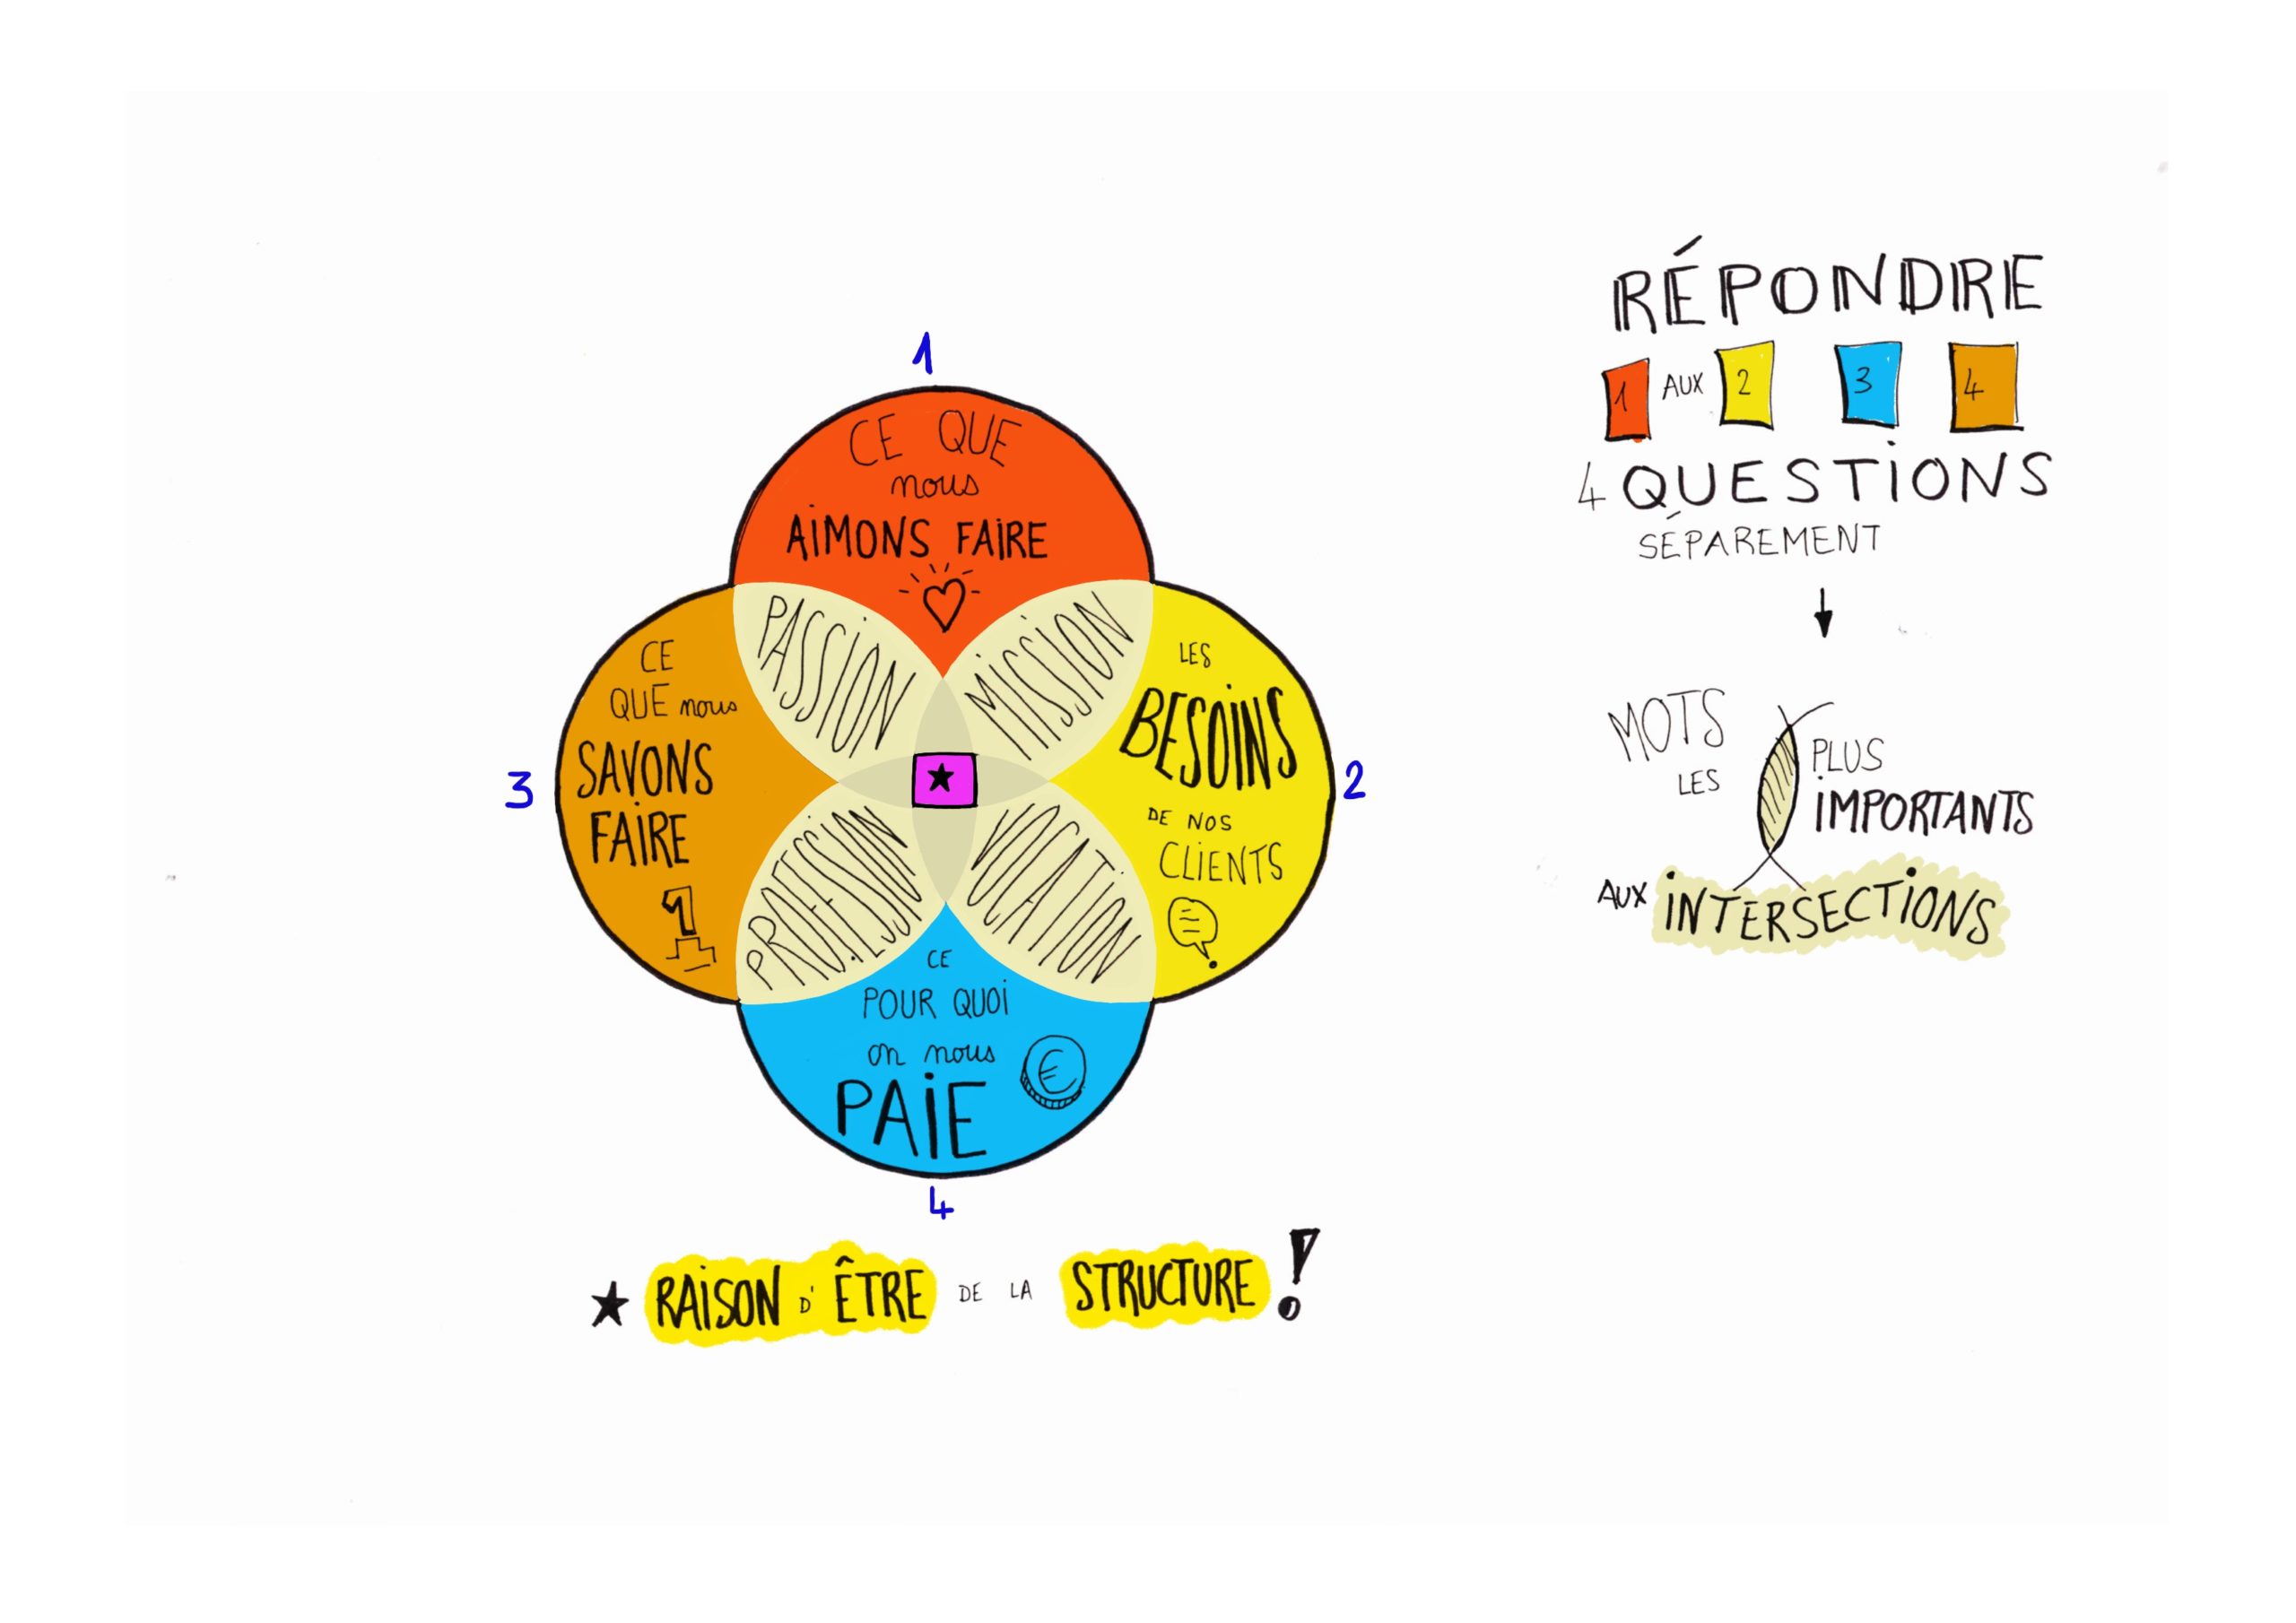 1
CE QUE
nous
AIMONS FAIRE
PASSION
MISSION
CE
QUE nous
SAVONS
FAIRE
1
3
LES
BESOINS
DE NOS
CLIENTS
2
PROFESSION
VOCATION
CE
POUR QUOI
on nous
PAIE
€
4
★ RAISON D' ÊTRE DE LA STRUCTURE !
RÉPONDRE
1 AUX 2 3 4
4 QUESTIONS
SÉPAREMENT
MOTS
LES
PLUS
IMPORTANTS
AUX INTERSECTIONS